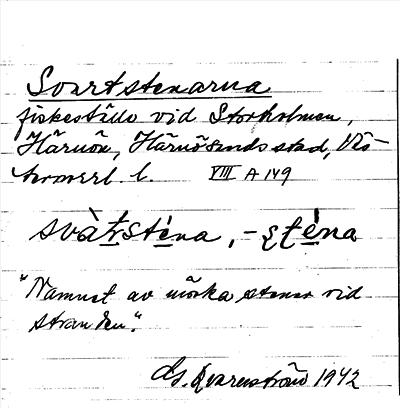 Svartstenarna
fiskeställe vid Storholmen,
Härnön, Härnösands stad, Väs-
ternorrl. l. VIII A 149
svàṭrstèna, -ṣṭèna
"Namnet av mörka stenar vid
stranden".
G. Kvarnström 1942